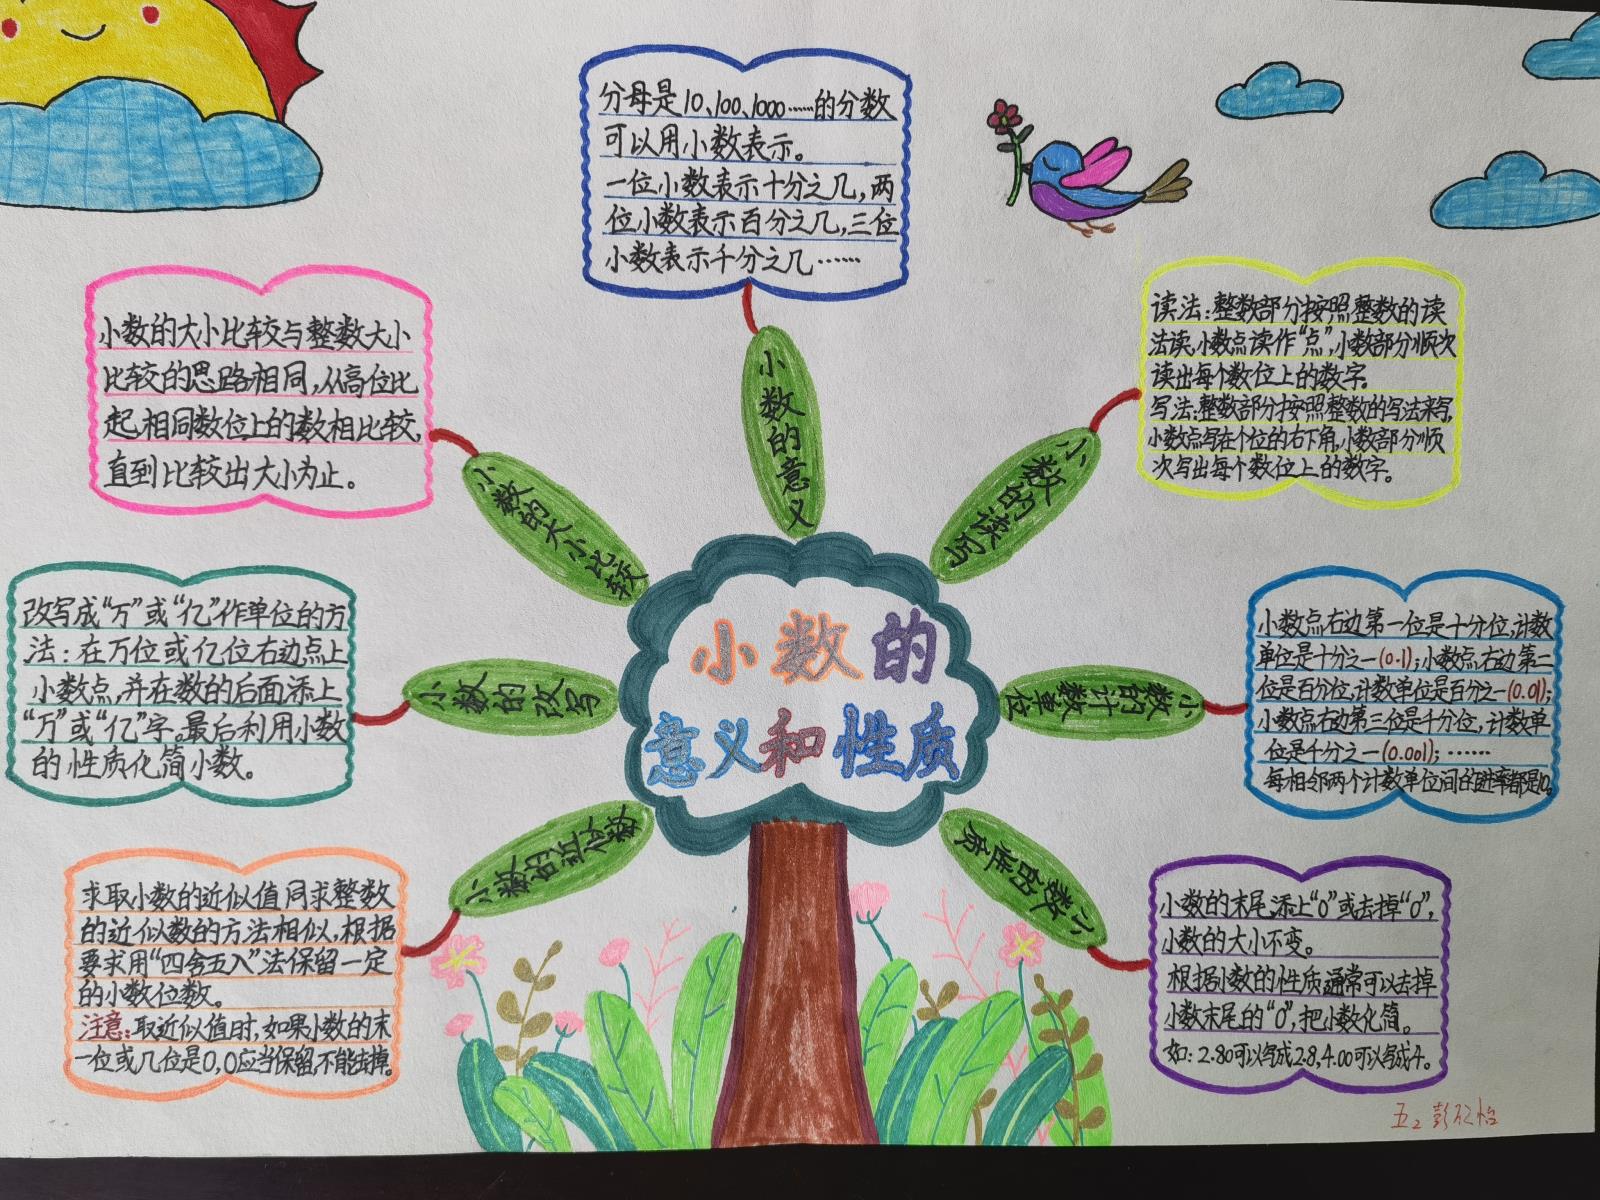 小数的
意义和性质
小数的意义
分母是10、100、1000……的分数
可以用小数表示。
一位小数表示十分之几,两
位小数表示百分之几,三位
小数表示千分之几……
小数的读写
读法:整数部分按照整数的读
法读,小数点读作“点”,小数部分顺次
读出每个数位上的数字。
写法:整数部分按照整数的写法来写,
小数点写在个位的右下角,小数部分顺
次写出每个数位上的数字。
小数的计
数单位
小数点右边第一位是十分位,计数
单位是十分之一(0.1);小数点右边第二
位是百分位,计数单位是百分之一(0.01);
小数点右边第三位是千分位,计数单
位是千分之一(0.001);……
每相邻两个计数单位间的进率都是10。
小数的性质
小数的末尾添上“0”或去掉“0”,
小数的大小不变。
根据小数的性质,通常可以去掉
小数末尾的“0”,把小数化简。
如:2.80可以写成2.8,4.00可以写成4。
小数的近似数
求取小数的近似值同求整数
的近似数的方法相似,根据
要求用“四舍五入”法保留一定
的小数位数。
注意:取近似值时,如果小数的末
一位或几位是0,0应当保留,不能去掉。
小数的改写
改写成“万”或“亿”作单位的方
法:在万位或亿位右边点上
小数点,并在数的后面添上
“万”或“亿”字。最后利用小数
的性质化简小数。
小数的大小比较
小数的大小比较与整数大小
比较的思路相同,从高位比
起,相同数位上的数相比较,
直到比较出大小为止。
五2 彭
怡